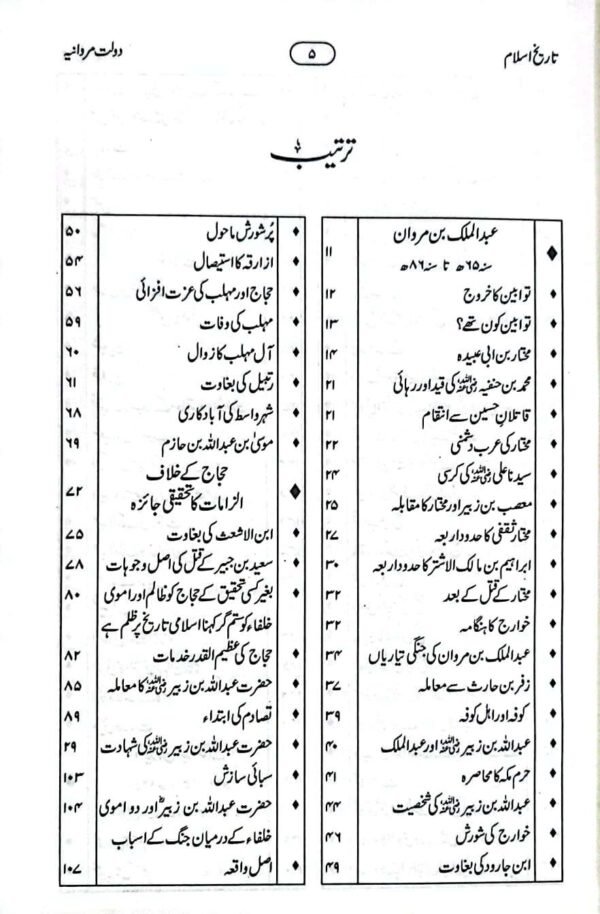 تاریخ اسلام ۵ دولت مروانیہ
ترتیب
عبدالملک بن مروان
سنہ ۶۵ھ تا سنہ ۸۶ھ ۱۱
توابین کا خروج ۱۲
توابین کون تھے؟ ۱۳
مختار بن ابی عبیدہ ۱۴
محمد بن حنفیہ رضی اللہ عنہ کی قید اور رہائی ۲۱
قاتلانِ حسین سے انتقام ۲۱
مختار کی عرب دشمنی ۲۲
سیدنا علی رضی اللہ عنہ کی کرسی ۲۴
مصعب بن زبیر اور مختار کا مقابلہ ۲۵
مختار ثقفی کا حدود اربعہ ۲۷
ابراہیم بن مالک الاشتر کا حدود اربعہ ۳۰
مختار کے قتل کے بعد ۳۲
خوارج کا ہنگامہ ۳۲
عبدالملک بن مروان کی جنگی تیاریاں ۳۴
زفر بن حارث سے معاملہ ۳۷
کوفہ اور اہل کوفہ ۳۹
عبداللہ بن زبیر رضی اللہ عنہ اور عبدالملک ۴۰
حرم مکہ کا محاصرہ ۴۱
عبداللہ بن زبیر رضی اللہ عنہ کی شخصیت ۴۴
خوارج کی شورش ۴۶
ابن جارود کی بغاوت ۴۹
پُر شورش ماحول ۵۰
ازارقہ کا استیصال ۵۴
حجاج اور مہلب کی عزت افزائی ۵۶
مہلب کی وفات ۵۹
آل مہلب کا زوال ۶۰
رتبیل کی بغاوت ۶۱
شہر واسط کی آبادکاری ۶۸
موسیٰ بن عبداللہ بن حازم ۶۹
حجاج کے خلاف
الزامات کا تحقیقی جائزہ ۷۲
ابن الاشعث کی بغاوت ۷۵
سعید بن جبیر کے قتل کی اصل وجوہات ۷۸
بغیر کسی تحقیق کے حجاج کو ظالم اور اموی ۸۰
خلفاء کو ستم گر کہنا اسلامی تاریخ پر ظلم ہے
حجاج کی عظیم القدر خدمات ۸۲
حضرت عبداللہ بن زبیر رضی اللہ عنہ کا معاملہ ۸۵
تصادم کی ابتداء ۸۹
حضرت عبداللہ بن زبیر رضی اللہ عنہ کی شہادت ۲۹
سبائی سازش ۱۰۳
حضرت عبداللہ بن زبیرؓ اور دو اموی ۱۰۴
خلفاء کے درمیان جنگ کے اسباب
اصل واقعہ ۱۰۷